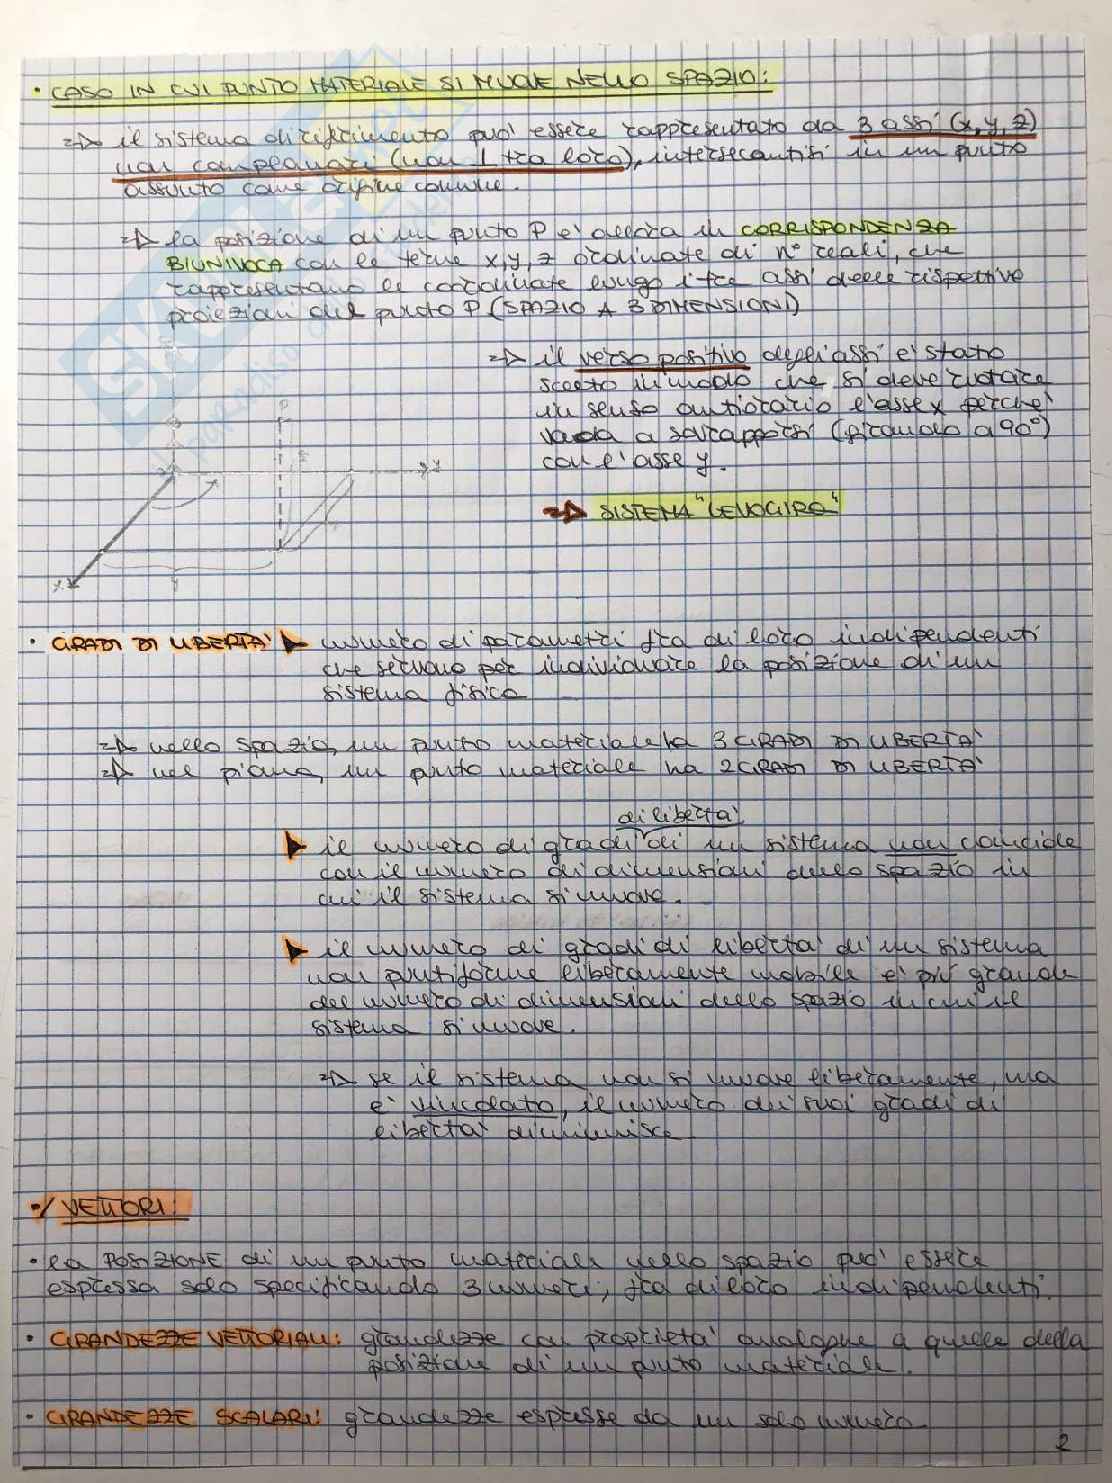 • CASO IN CUI PUNTO MATERIALE SI MUOVE NELLO SPAZIO:
=> il sistema di riferimento può essere rappresentato da 3 assi (x, y, z)
non complanari (non 1 tra loro), intersecantisi in un punto
assunto come origine comune.
=> la posizione di un punto P è allora in CORRISPONDENZA
BIUNIVOCA con le terne x, y, z ordinate di n° reali, che
rappresentano le coordinate lungo i tre assi delle rispettive
proiezioni del punto P (SPAZIO A 3 DIMENSIONI)
=> il verso positivo degli assi è stato
scelto in modo che si deve ruotare
in senso antiorario l'asse x perché
vada a sovrapporsi (ruotando a 90°)
con l'asse y.
P
z
y
=> SISTEMA "LEVOGIRO"
x
y
• GRADI DI LIBERTÀ ► numero di parametri fra di loro indipendenti
che servono per individuare la posizione di un
sistema fisico
=> nello spazio, un punto materiale ha 3 GRADI DI LIBERTÀ
=> nel piano, un punto materiale ha 2 GRADI DI LIBERTÀ
di libertà
► il numero di gradi di un sistema non coincide
con il numero di dimensioni dello spazio in
cui il sistema si muove.
► il numero di gradi di libertà di un sistema
non puntiforme liberamente mobile è più grande
del numero di dimensioni dello spazio in cui il
sistema si muove.
=> se il sistema non si muove liberamente, ma
è vincolato, il numero di suoi gradi di
libertà diminuisce
•/ VETTORI:
• la POSIZIONE di un punto materiale nello spazio può essere
espressa solo specificando 3 numeri, fra di loro indipendenti.
• GRANDEZZE VETTORIALI: grandezze con proprietà analoghe a quelle della
posizione di un punto materiale.
• GRANDEZZE SCALARI: grandezze espresse da un solo numero.
2